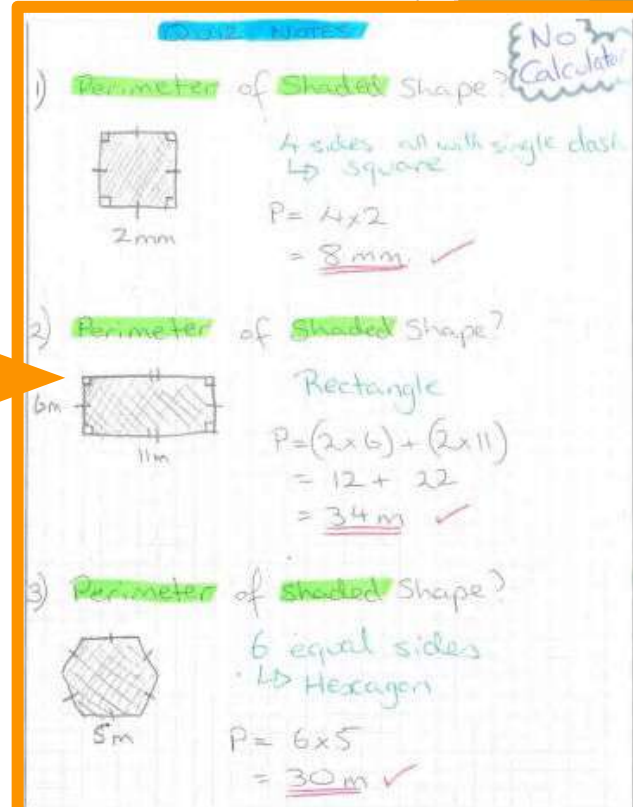 QUIZ NOTES
No Calculator
1) Perimeter of Shaded Shape?
4 sides all with single dash
↳ square
2mm
P = 4×2
= 8mm ✓
2) Perimeter of Shaded Shape?
Rectangle
6m
11m
P=(2×6)+(2×11)
= 12 + 22
= 34m ✓
3) Perimeter of shaded Shape?
6 equal sides
↳ Hexagon
5m
P = 6×5
= 30m ✓